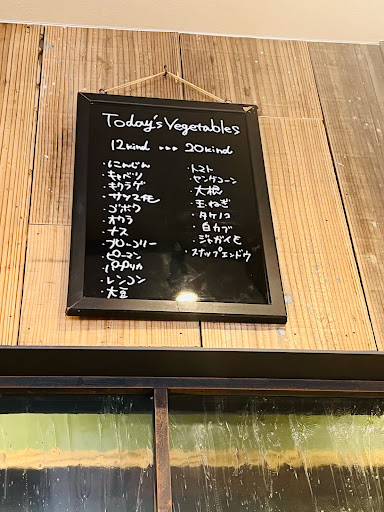 Today's Vegetables
12kind ••• 20kind
・にんじん
・キャベツ
・キクラゲ
・サツマイモ
・ゴボウ
・オクラ
・ナス
・ブロッコリー
・ピーマン
・レンコン
・大豆
・トマト
・ヤングコーン
・大根
・玉ねぎ
・タケノコ
・白カブ
・ジャガイモ
・スナップエンドウ